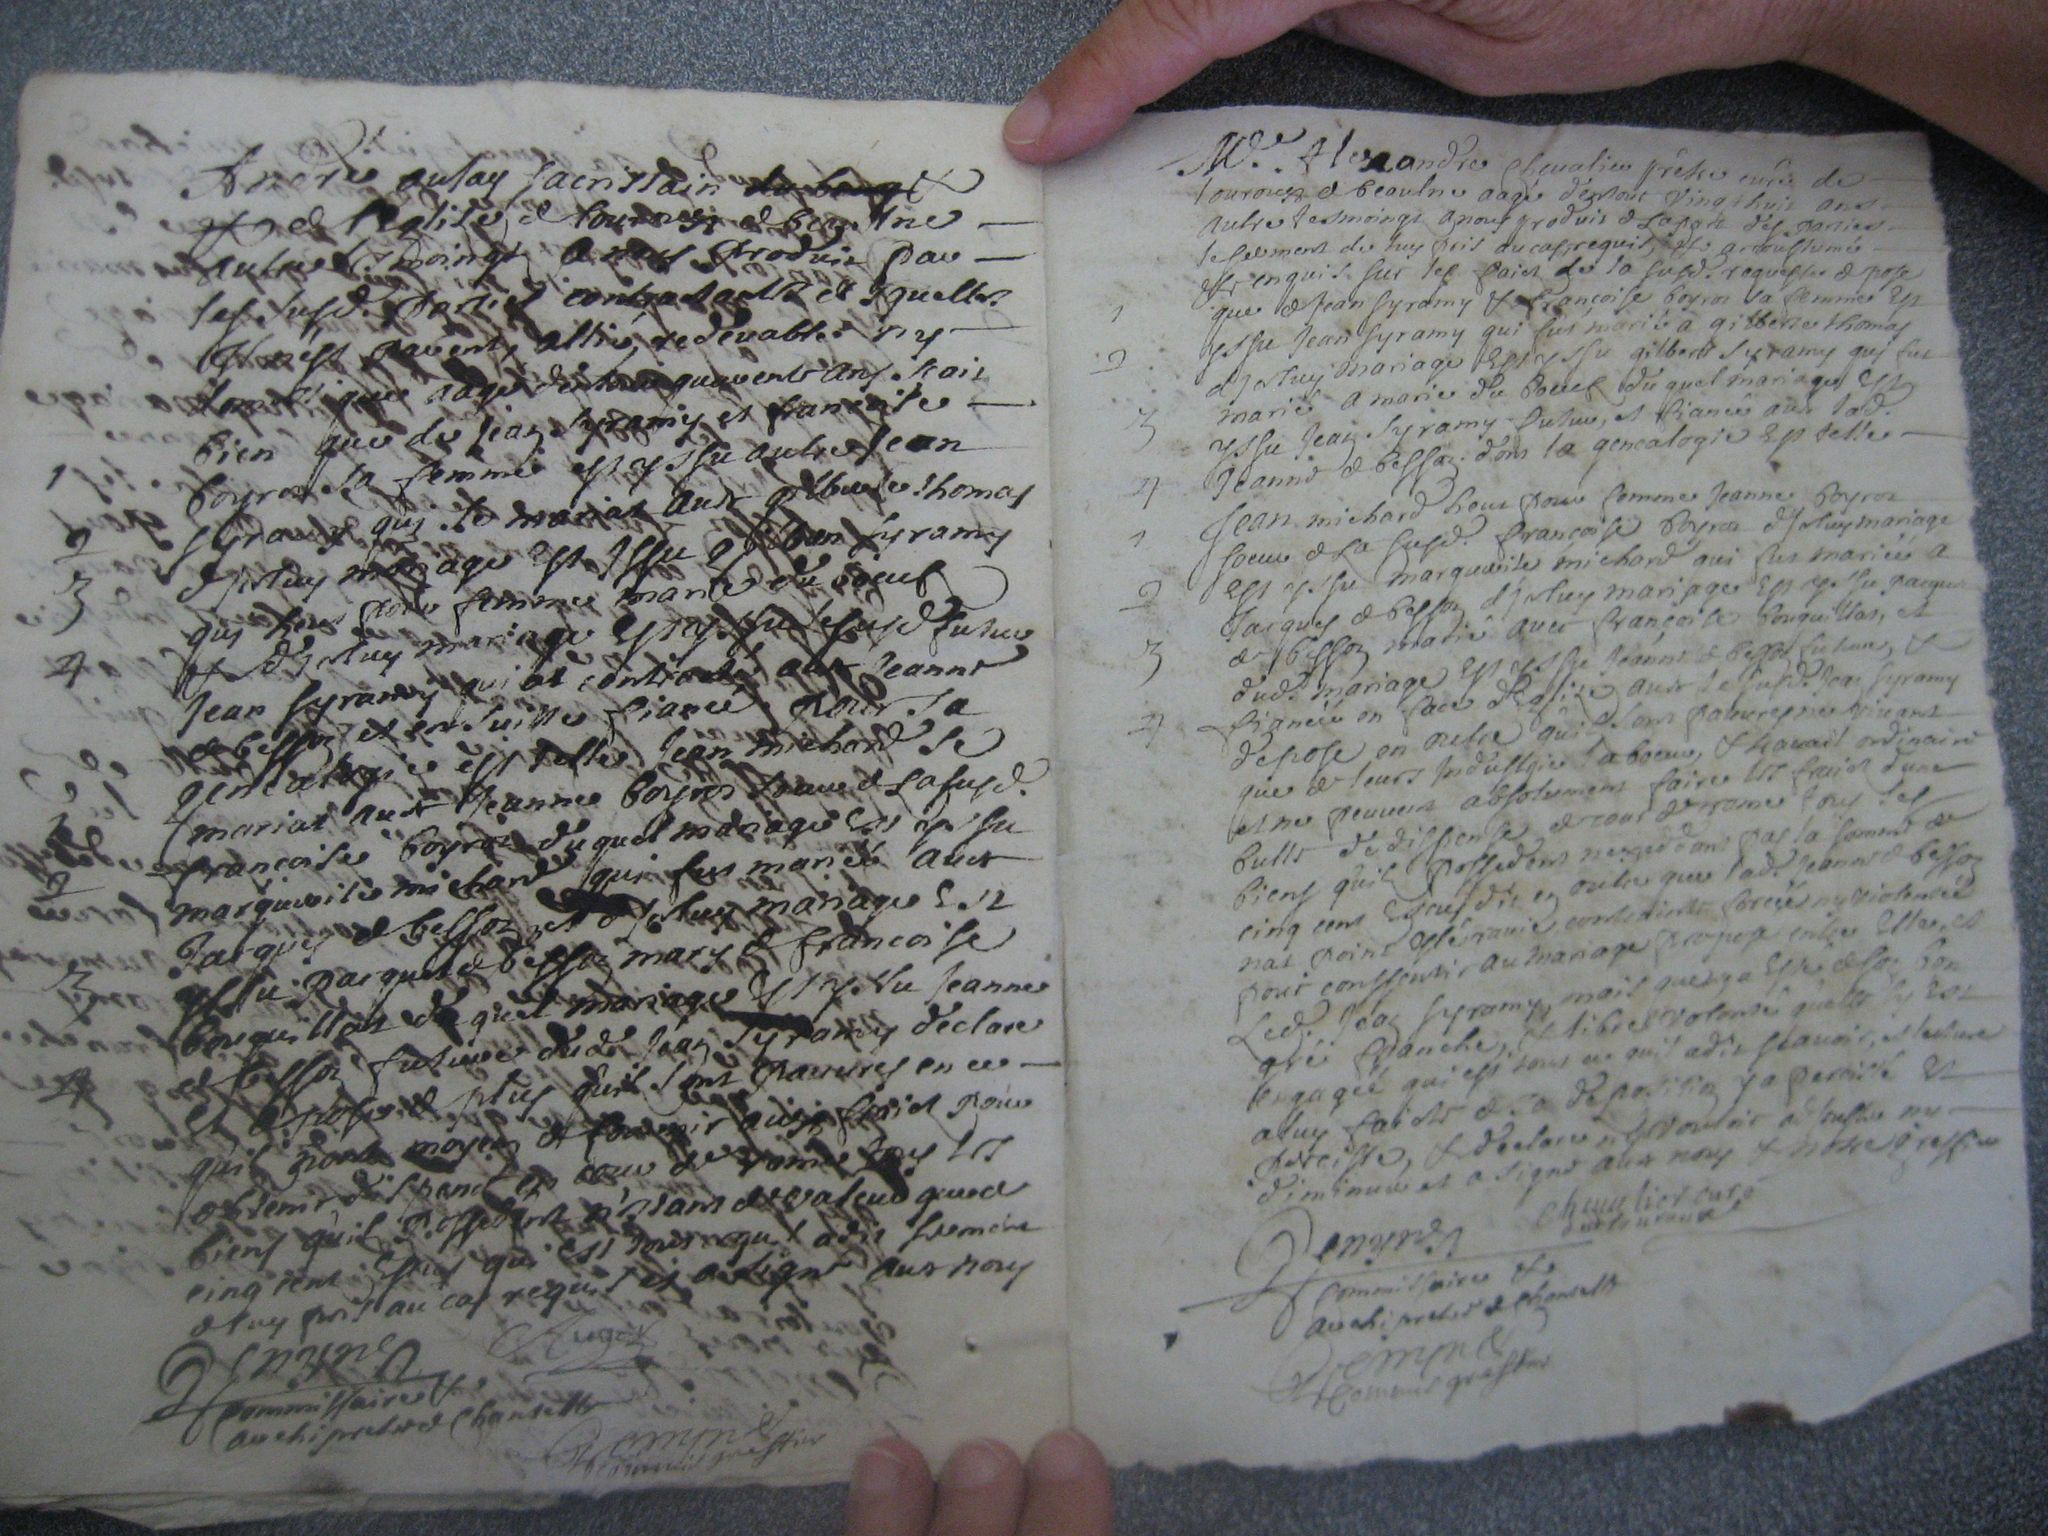 André aulay sacristain
de l'eglise de tourouzs de beaulne
autre tesmoingt a nous produit par
les susd. parties contractants et desquelles
il n'est parent, allié, redevable ny
domestique aagé d'environ quarente ans scait
bien que de Jean Syramy et francoise
1 boyrot sa femme est yssu autre Jean
2 Syramy qui se mariat avec gilberte thomas
3 d'jceluy mariage Est Issu gilbert Syramy
qui heut pour femme marie du boeuf
4 et d'jceluy mariage Est yssu le susd. futur
Jean Syramy qui at contracté avec Jeanne
de besson et ensuitte fiancé pour sa
genealogie est telle Jean michard se
1 mariat avec Jeanne boyrot soeur de la susd.
francoise boyrot duquel mariage Est yssu
2 marguerite michard qui fut mariée avec
Jacques de besson et d'jceluy mariage Est
3 yssu jacques de besson mary de francoise
bouquillat duquel mariage Est yssu Jeanne
4 de besson future dud. Jean Syramy declare
et depose de plus qu'ils sont pauvres en ce
qu'ils n'ont moyen de fournir aux fraict pour
obtenir dispence en cour de rome tous les
biens qu'ils possedent n'estant de valeur que de
cinq cent escus qui est tout ce qu'il a dit serment
de luy pris au cas requis et a signé avec nous
commissaire et
archipretre de Chantelle
commis greffier
Mre. Alexandre Chevalier prêtre curé de
tourouzs de beaulne aagé d'environt vingt huit ans
autre tesmoingt a nous produit de la part des parties
le serment de luy pris au cas requis, et accoustumé
Et enquis sur les faict de la susd. requeste depose
1 que de Jean Syramy et francoise boyrot sa femme Est
yssu Jean Syramy qui fut marié a gilberte thomas
2 d'jceluy mariage Est yssu gilbert Syramy qui fut
3 marié a marie du boeuf duquel mariage Est
yssu Jean Syramy futur, et fiancé avec lad.
4 Jeanne de besson dont la genealogie Est telle
Jean michard heut pour femme Jeanne boyrot
1 soeur de la susd. francoise boyrot d'jceluy mariage
Est yssu marguerite michard qui fut mariée a
2 Jacques de besson d'jceluy mariage Est yssu jacques
de besson marié avec francoise bouquillat, et
3 dud. mariage Est yssu Jeanne de besson future, et
4 fiancée en face d'eglise avec le susd. Jean Syramy
depose en outre qu'ils sont pauvres ne vivant
que de leurs Industrie labeur, et travail ordinaire
et ne peuvent absolument faire les fraict d'une
bulle de dispense en cour de rome tous les
biens qu'ils possedent n'excedant pas la somme de
cinq cent Escus dit en outre que lad. Jeanne de besson
nat point esté ravie contrainte forcée ny violentée
pour conssentir au mariage proposé entre Elle, et
Led. Jean Syramy, mais que ça Esté de son bon
gré franche, et libre volonté qu'elle s'y Est
engagée qui est tout ce qu'il a dit scavoir, et lecture
a luy faicte de sa deposition y a persisté Et
persiste, et declare n'y vouloir adjouster ny
diminuer et a signé avec nous et notre greffier
Chevalier curé
commissaire et
archipretre de Chantelle
commis greffier